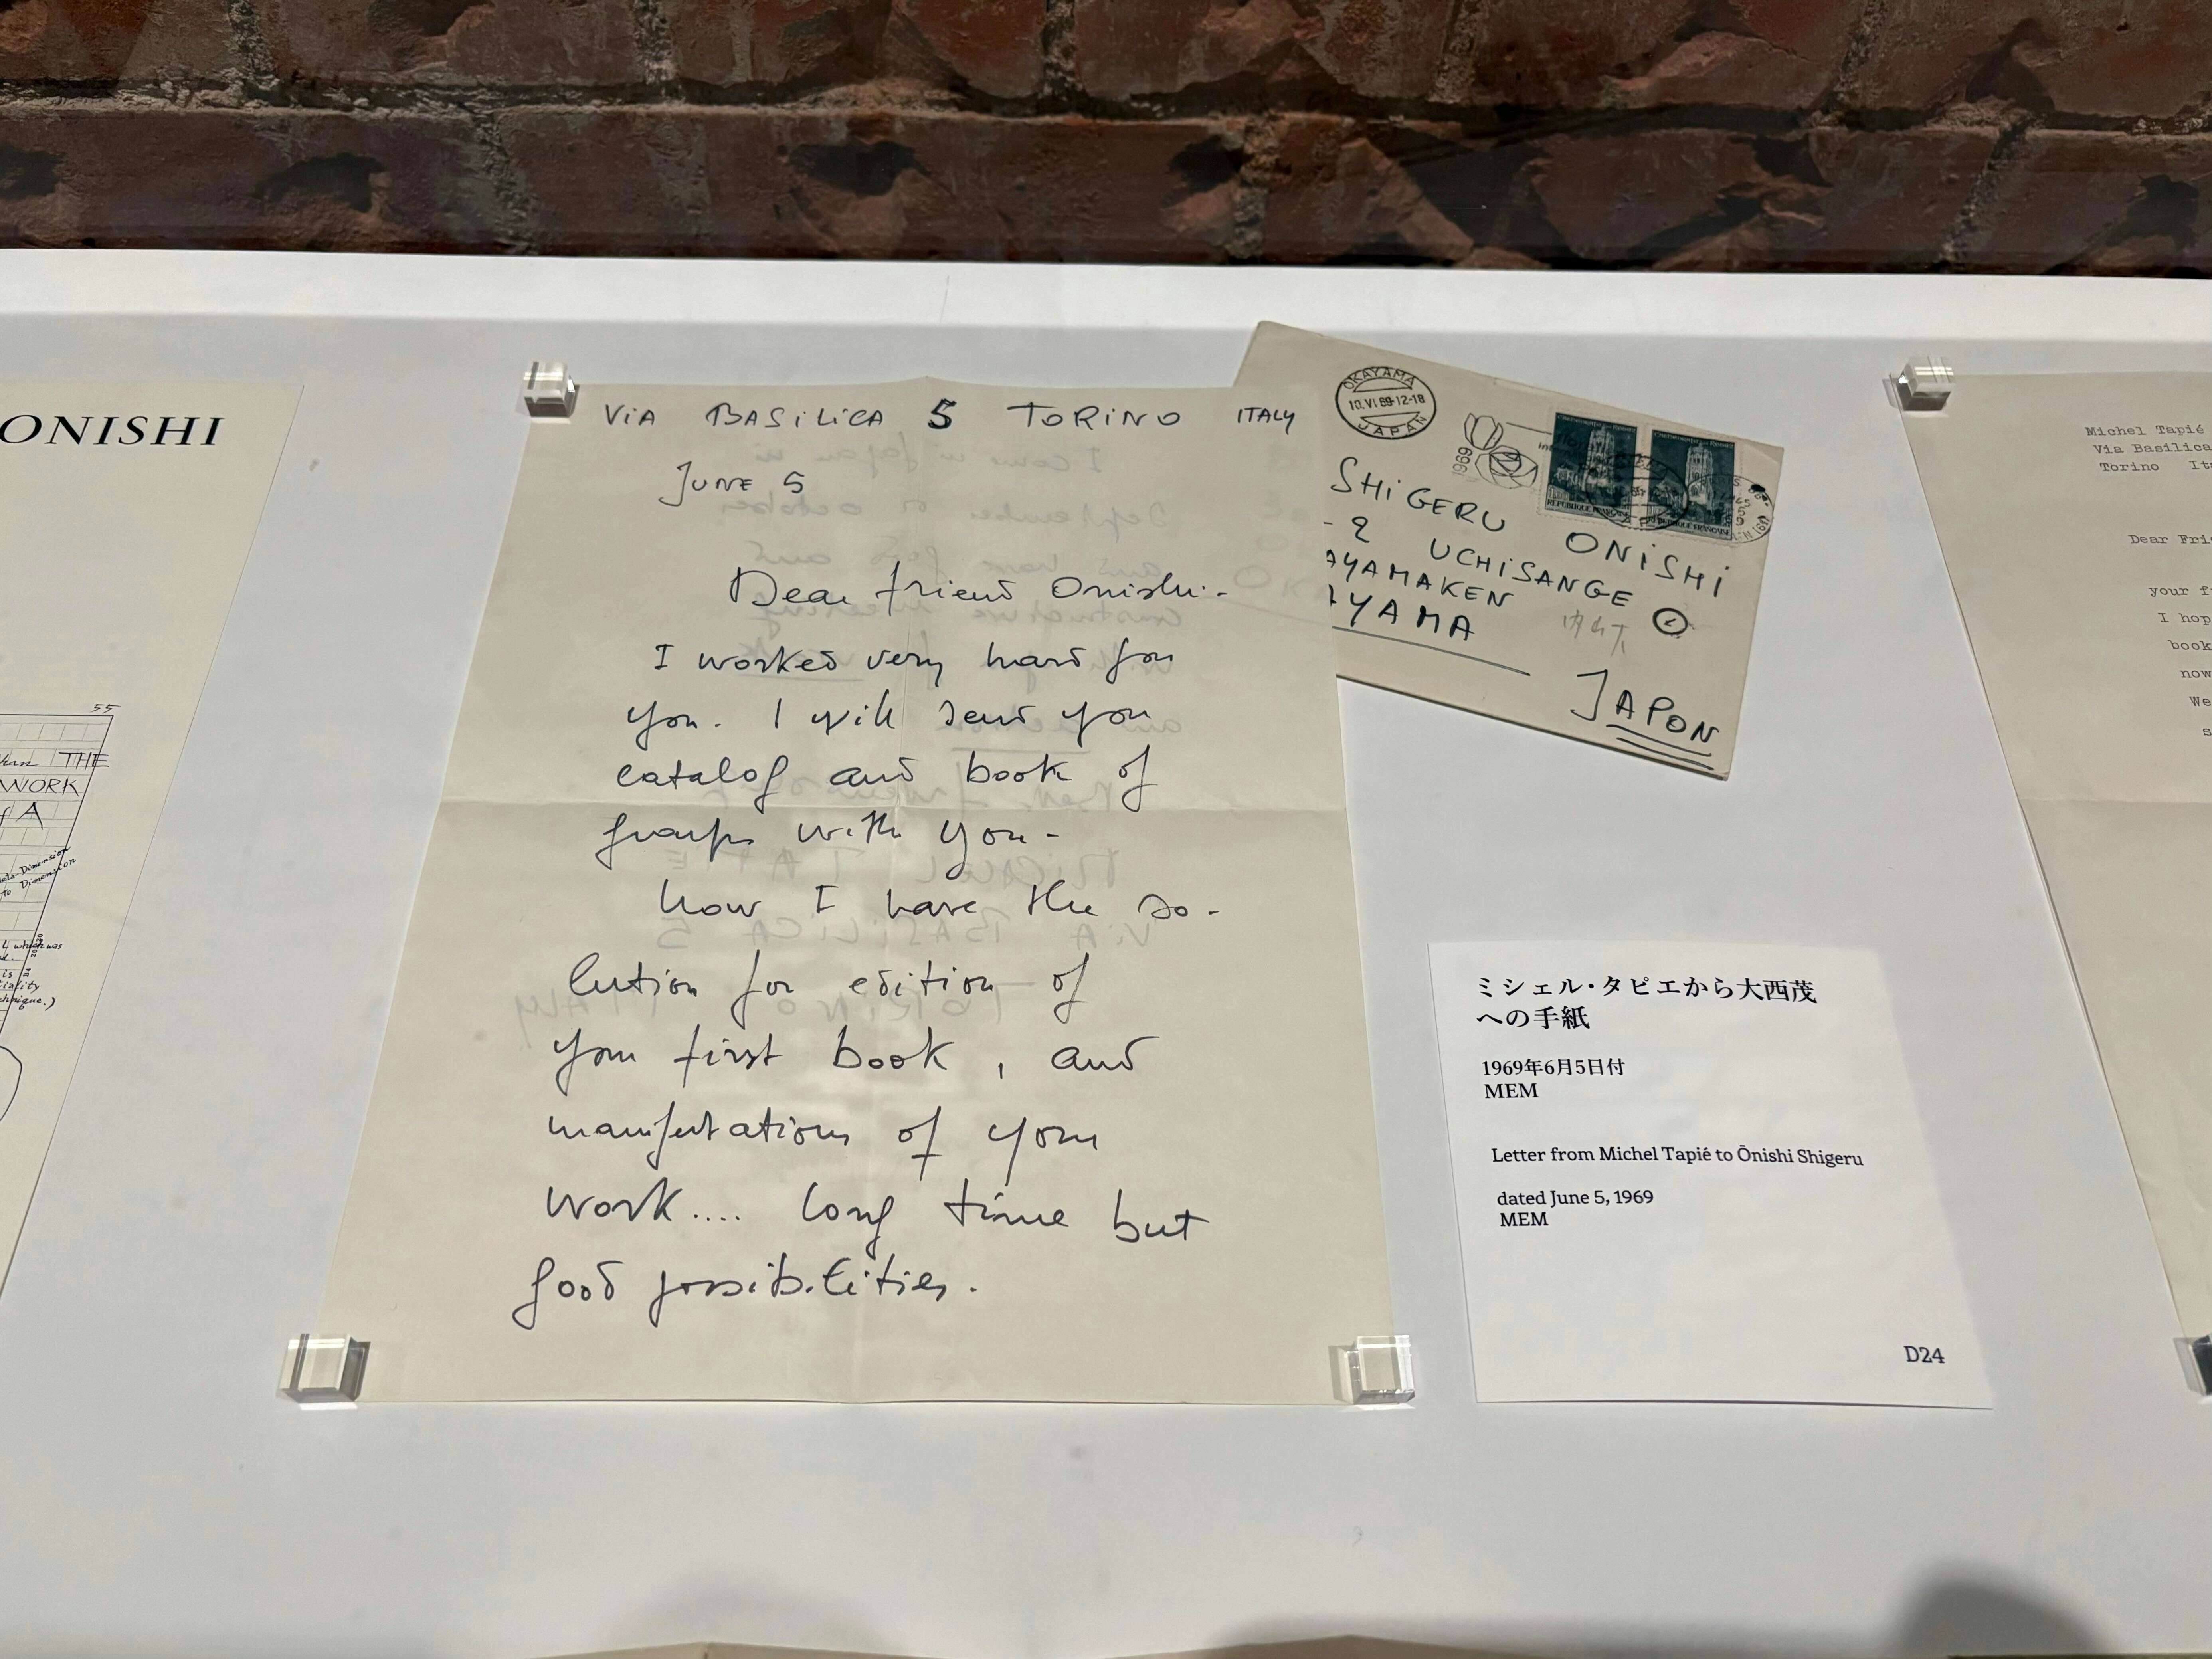 ONISHI
55
THE
WORK
A
Dimension
to Dimension
which was
is
VIA BASILICA 5 TORINO ITALY
JUNE 5
Dear friend Onishi -
I worked very hard for
you. I will send you
catalog and book of
groups with you -
now I have the so-
lution for edition of
your first book, and
manifestations of your
work.... long time but
good possibilities.
OKAYAMA
10.VI.69.12-18
JAPAN
1969
REPUBLIQUE FRANÇAISE
REPUBLIQUE FRANÇAISE
SHIGERU ONISHI
-2 UCHISANGE
AYAMAKEN
YAMA
JAPON
ミシェル・タピエから大西茂
への手紙
1969年6月5日付
MEM
Letter from Michel Tapié to Ōnishi Shigeru
dated June 5, 1969
MEM
D24
Michel Tapié
Via Basilica
Torino It
Dear Fri
your f
I hop
book
now
We
s